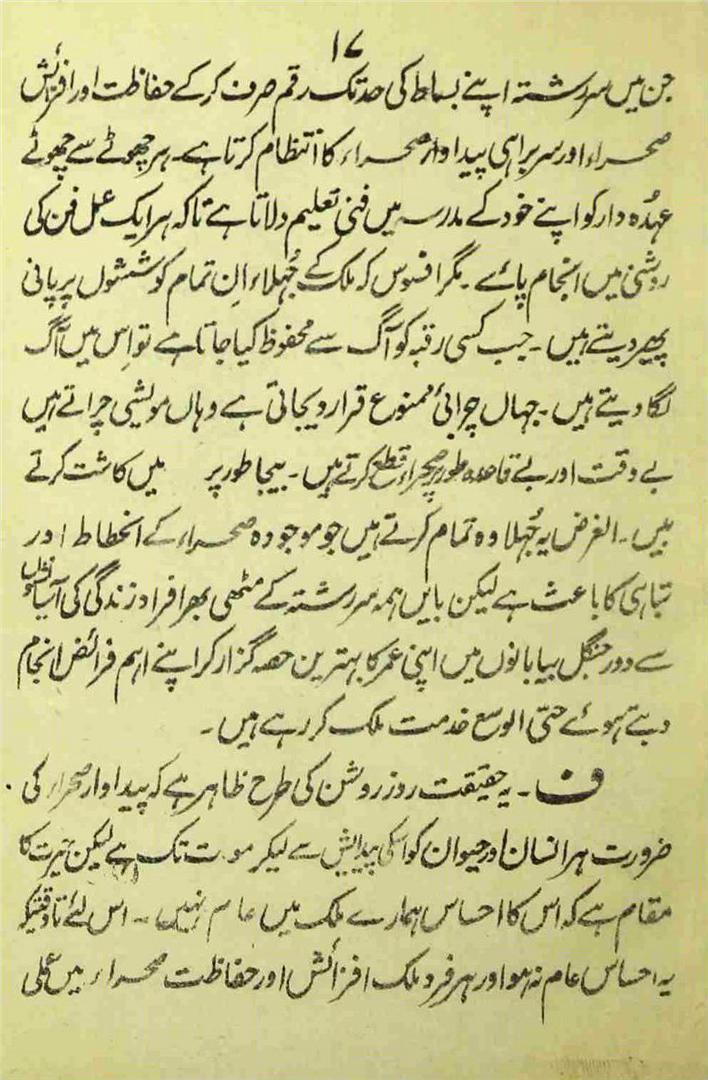 ۱۷
جن میں سررشتہ اپنے بساط کی حد تک رقم صرف کر کے حفاظت اور افزائش
صحراء اور سربراہی پیداوار صحراء کا انتظام کرتا ہے۔ ہر چھوٹے سے چھوٹے
عہدہ دار کو اپنے خود کے مدرسہ میں فنی تعلیم دلاتا ہے تاکہ ہر ایک عمل فن کی
روشنی میں انجام پائے۔ مگر افسوس کہ ملک کے جُہلاء اِن تمام کوششوں پر پانی
پھیر دیتے ہیں۔ جب کسی رقبہ کو آگ سے محفوظ کیا جاتا ہے تو اِس میں آگ
لگا دیتے ہیں۔ جہاں چرائی ممنوع قرار دیجاتی ہے وہاں مویشی چراتے ہیں
بے وقت اور بے قاعدہ طور پر صحراء قطع کرتے ہیں۔ بیجا طور پر میں کاشت کرتے
ہیں۔ الغرض یہ جُہلا وہ تمام کرتے ہیں جو موجودہ صحراء کے انحطاط اور
تباہی کا باعث ہے لیکن بایں ہمہ سررشتہ کے مٹھی بھر افراد زندگی کی آسائشوں
سے دور جنگل بیابانوں میں اپنی عمر کا بہترین حصہ گزار کر اپنے اہم فرائض انجام
دیتے ہوئے حتی الوسع خدمت ملک کر رہے ہیں۔
ف ۔ یہ حقیقت روز روشن کی طرح ظاہر ہے کہ پیداوار صحراء کی
ضرورت ہر انسان اور حیوان کو اسکی پیدایش سے لیکر موت تک ہے لیکن حیرت کا
مقام ہے کہ اس کا احساس ہمارے ملک میں عام نہیں۔ اس لئے تاوقتیکہ
یہ احساس عام نہ ہو اور ہر فرد ملک افزائش اور حفاظت صحراء میں عملی